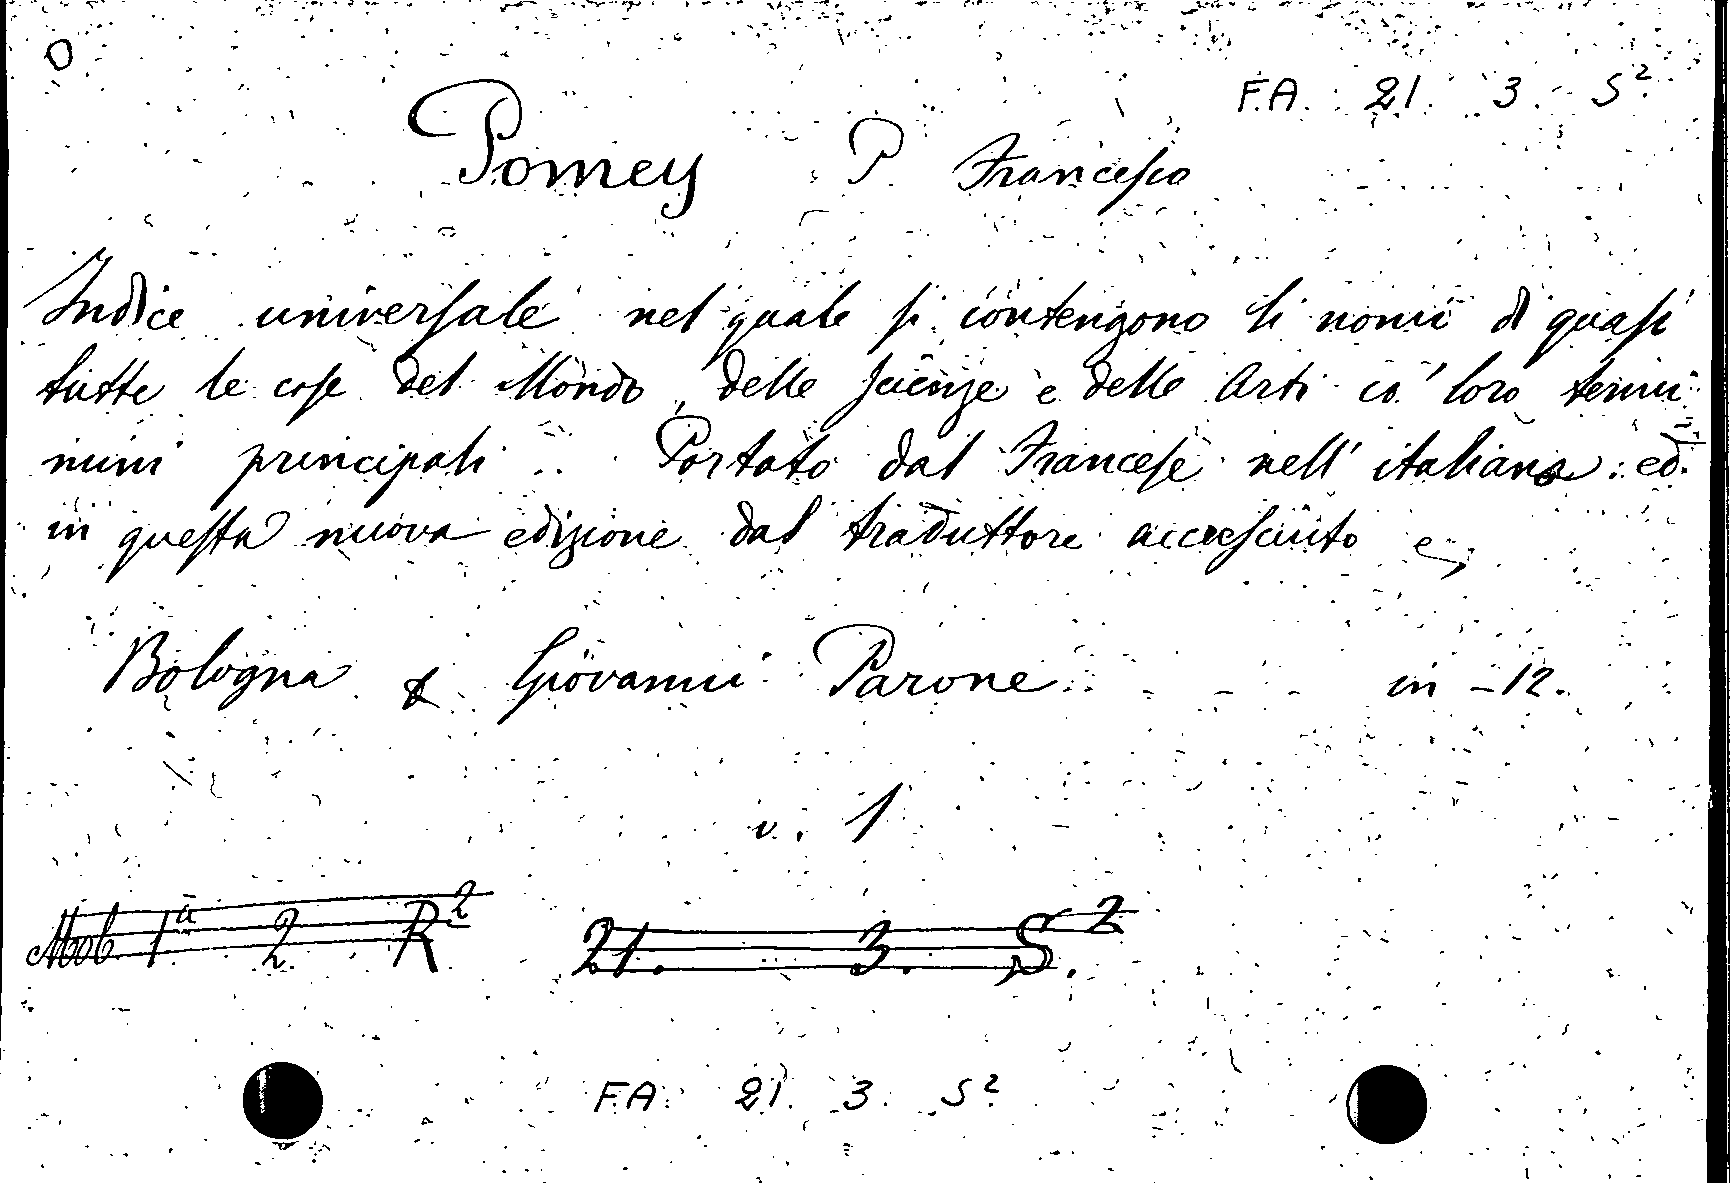 O
F.A. 21. 3. S².
Pomey P. Francesco
Indice universale nel quale si contengono li nomi di quasi
tutte le cose del Mondo, delle scienze e delle Arti co' loro termi
mini principali .. Portato dal Francese nell' italiano: ed.
in questa nuova edizione dal traduttore accresciuto e,
Bologna & Giovanni Parone in - 12.
v. 1
Mob. 1ª 2 R² 21. 3. S.²
F.A. 21. 3. S²